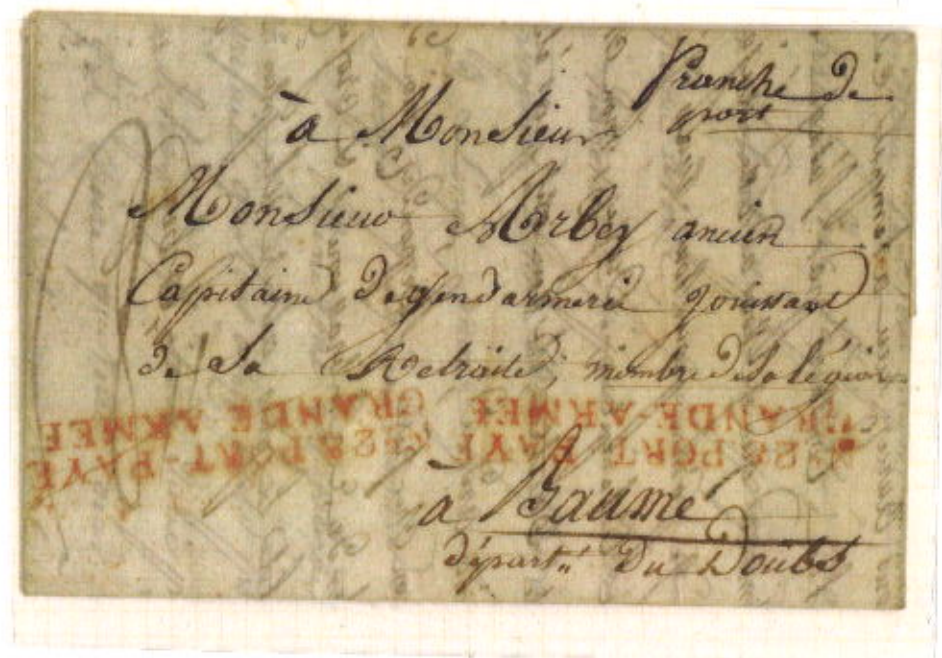 Franche de
port
à Monsieur
Monsieur Arbey ancien
Capitaine degendarmerie jouissant
de Sa Retraite, membre de la légion
GRANDE-ARMÉE
Nº 28 PORT PAYÉ
GRANDE ARMÉE
Nº 28 PORT-PAYÉ
GRANDE ARMÉE
à Baume
départ" Du Doubs